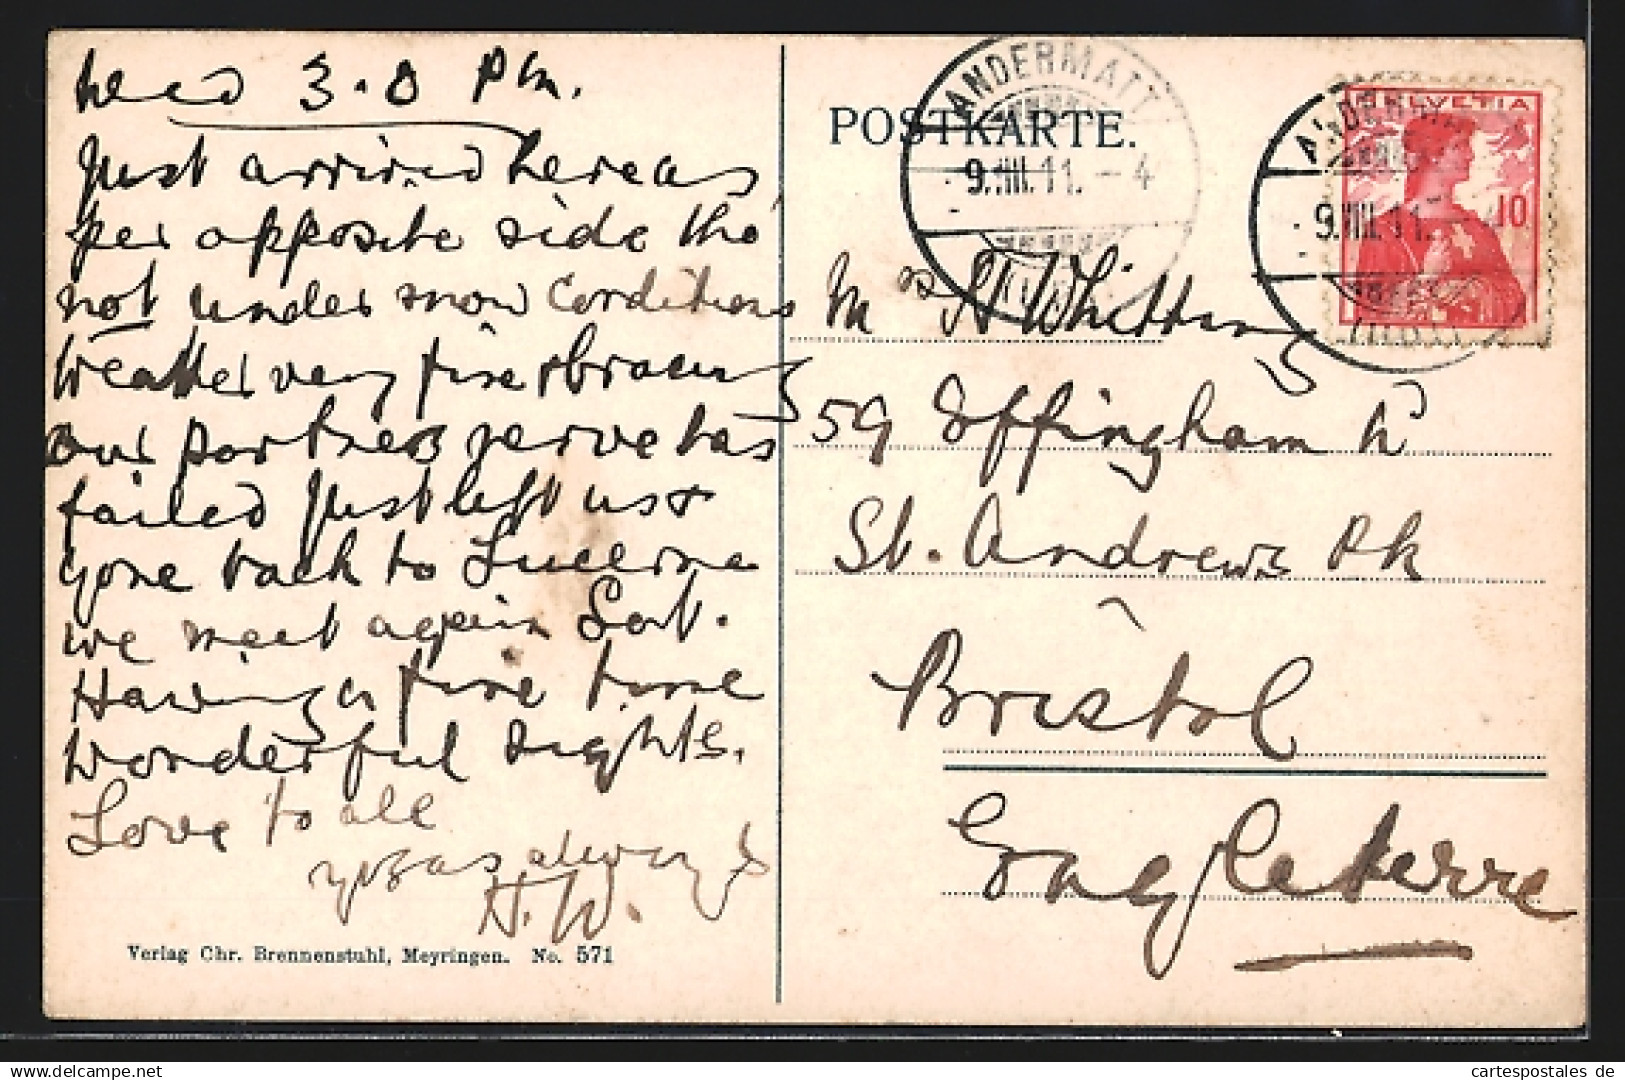 Wed 3.0 pm.
Just arrived here as
per opposite side tho'
not under snow conditions
weather very fine & bracing
our partners nerve has
failed Just left us &
gone back to Lucerne
we meet again Sat.
Having a fine time
Wonderful sights.
Love to all
yrs as always
H.W.
Verlag Chr. Brennenstuhl, Meyringen. No. 571
POSTKARTE.
ANDERMATT
9.VIII.11.–4
ANDERMATT
9.VIII.11.–
HELVETIA
10
Mrs H Whitting
59 Effingham Rd
St. Andrews Pk
Bristol
Engleterre
www.delcampe.net
cartespostales de